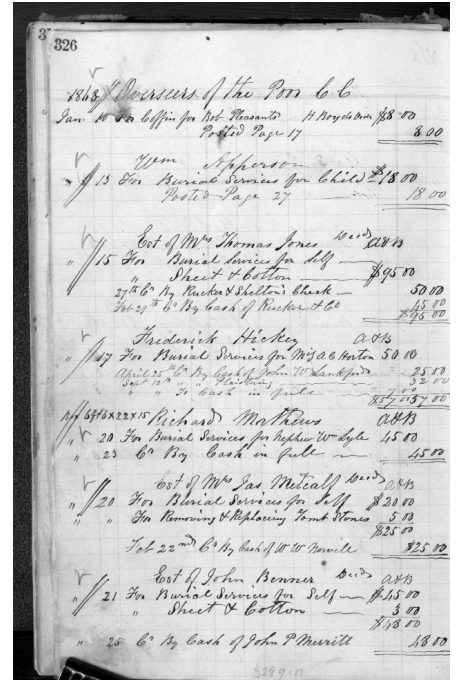 326
1868 Overseers of the Poor C C
Jan 10 For Coffin for Bob Pleasants H Boyds order $8 00
Posted Page 17 8 00
Wm Apperson
" 13 For Burial Services for Child $18 00
Posted Page 27 18 00
Est of Mrs Thomas Jones Decd A&B
" 15 For Burial Services for Self
" Sheet & Cotton $95 00
27th Cr By Rucker & Shelton's Check 50 00
Feb 29th Cr By Cash of Rucker & Co 45 00
$95 00
Frederick Hickey A&B
" 17 For Burial Services for Mrs A C Horton 50 00
April 25th Cr By Cash of John W Lankford 25 00
Sept 18th " " Plaistring 32 00
" " To Cash in full 7 00
$57 00 57 00
6 ft 6 x 22 x 15 Richard Mathews A&B
" 20 For Burial Services for Nephew Wm Lyle 45 00
" 23 Cr By Cash in full 45 00
Est of Mrs Jas Metcalf Decd A&B
" 20 For Burial Services for Self $20 00
" " For Removing & Replacing Tomb Stones 5 00
$25 00
Feb 22nd Cr By Cash of W W Norvell $25 00
Est of John Benner Decd A&B
" 21 For Burial Services for Self $45 00
" Sheet & Cotton 3 00
$48 00
" 25 Cr By Cash of John P Merritt 48 00